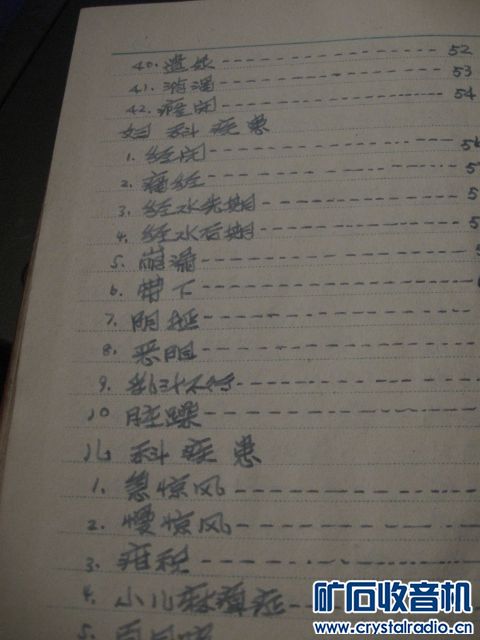 40. 遗尿 52
41. 消渴 53
42. 癃闭 54
妇科疾患
1. 经闭 5
2. 痛经 5
3. 经水先期 5
4. 经水后期 5
5. 崩漏 5
6. 带下
7. 阴挺
8. 恶阻
9. 乳汁不行
10 脏躁
儿科疾患
1. 急惊风
2. 慢惊风
3. 疳积
4. 小儿麻痹症
5. 百日咳
矿石收音机
www.crystalradio.cn